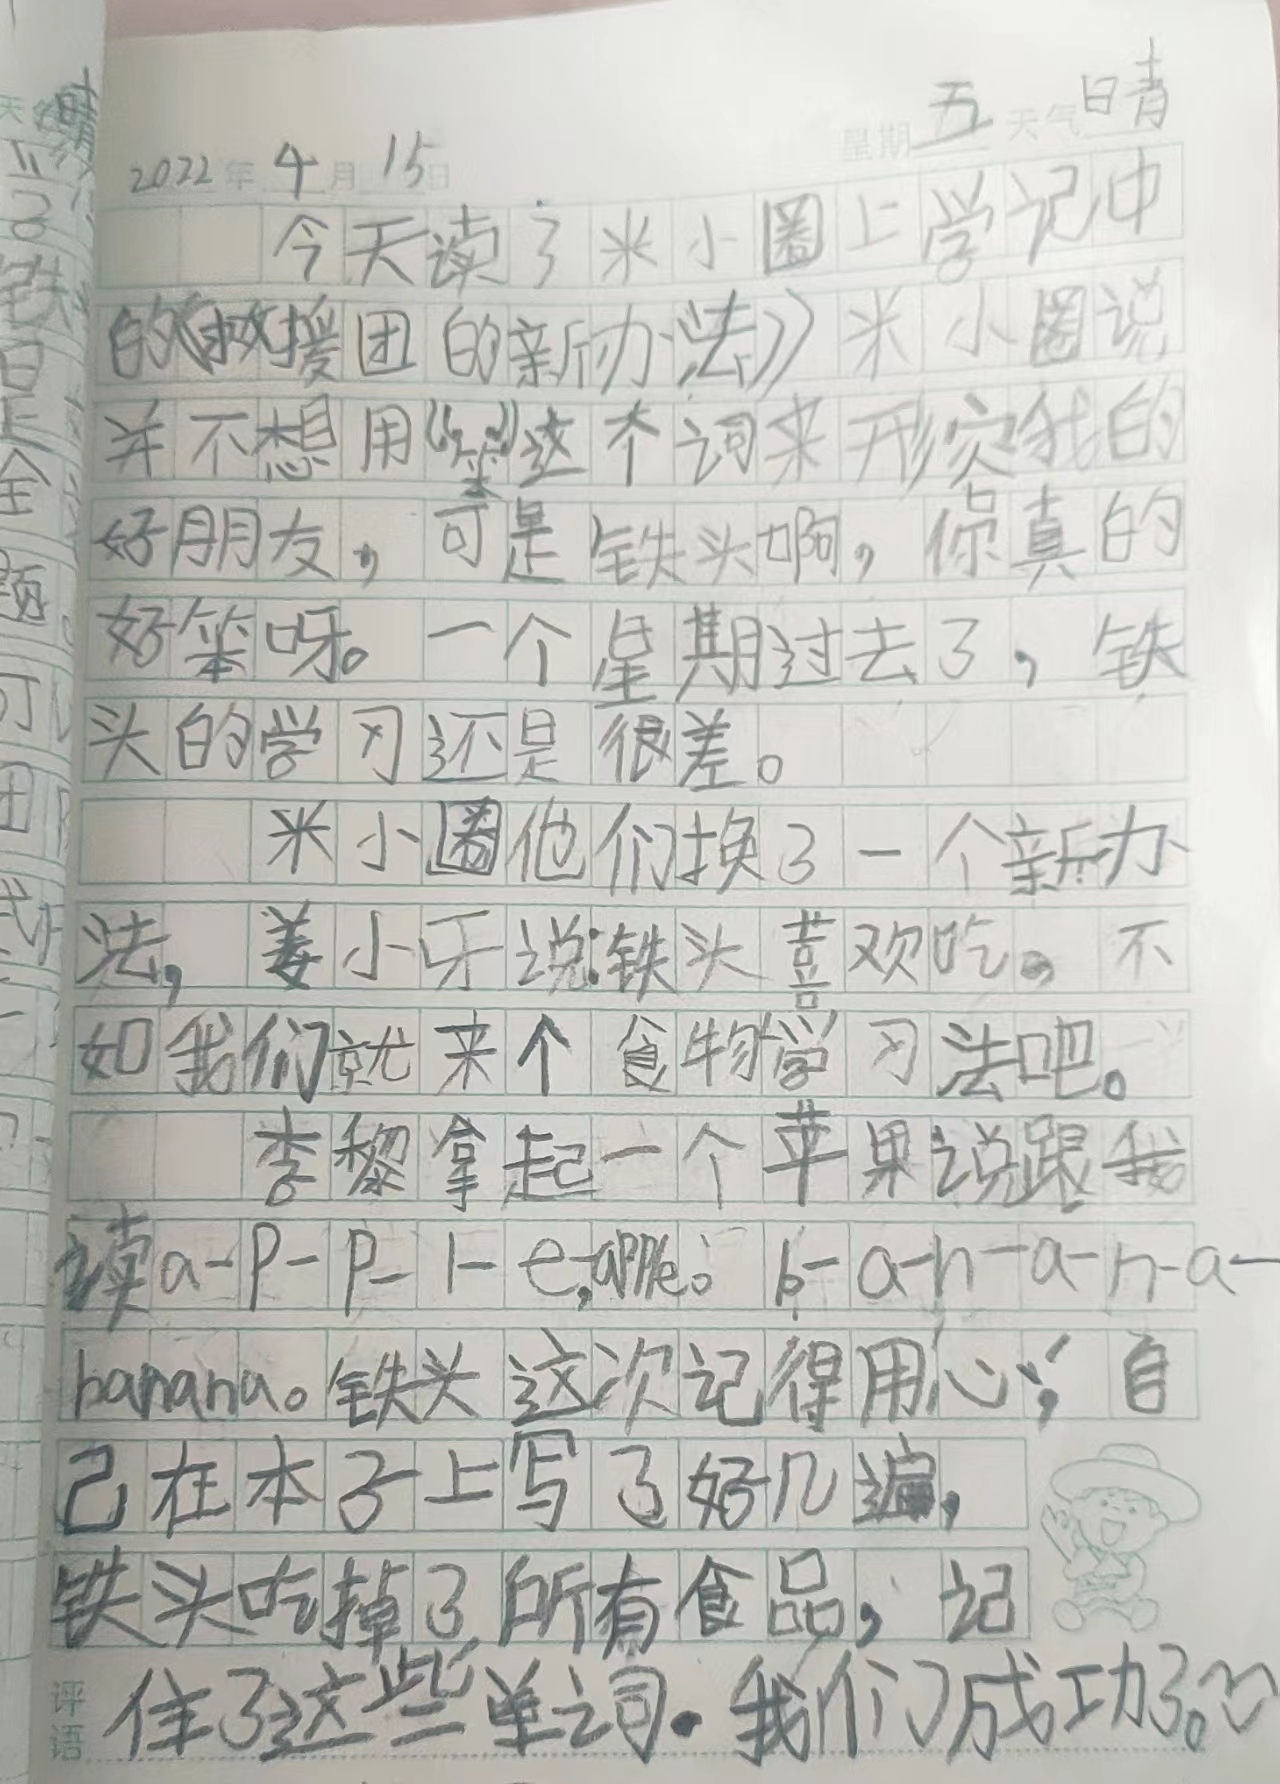 2022年4月15日 星期五 天气晴
今天读了米小圈上学记中
的《救援团的新办法》米小圈说
并不想用“笨”这个词来形容我的
好朋友，可是铁头啊，你真的
好笨呀。一个星期过去了，铁
头的学习还是很差。
米小圈他们换了一个新办
法，姜小牙说：铁头喜欢吃。不
如我们就来个食物学习法吧。
李黎拿起一个苹果说跟我
读a-p-p-l-e,apple。b-a-n-a-n-a-
banana。铁头这次记得用心，自
己在本子上写了好几遍，
铁头吃掉了所有食品，记
评语
住了这些单词．我们成功了。